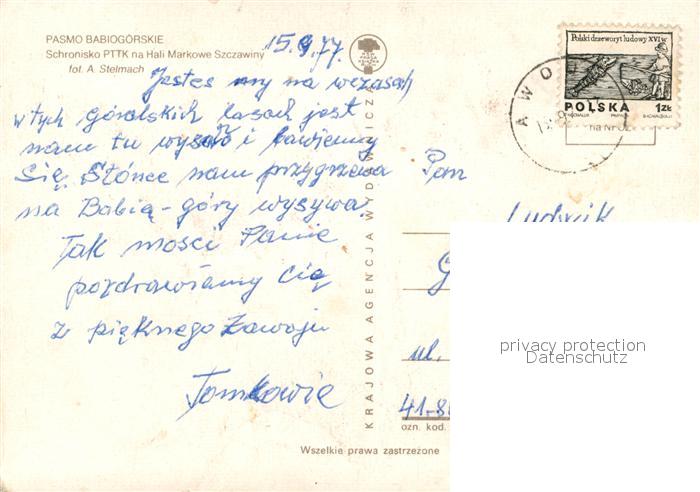 PASMO BABIOGÓRSKIE
Schronisko PTTK na Hali Markowe Szczawiny
fot. A. Stelmach
15.9.77.
Jesteśmy na wczasach
w tych góralskich lasach jest
nam tu wesoło i bawiemy
się. Słońce nam przygrzewa
na Babią-górę wysywa.
Tak mości Panie
pozdrawiamy Cię
z pięknego Zawoju
Tomkowie
KRAJOWA AGENCJA WYDAWNICZA
Polski drzeworyt ludowy XVI w
POLSKA 1ZŁ
Pan
Ludwik
G
ul.
41-8
ozn. kod.
Wszelkie prawa zastrzeżone
privacy protection
Datenschutz